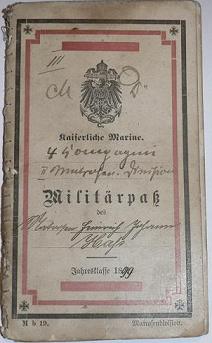 III
Kaiserliche Marine.
4 Kompagnie
II Matrosen-Division
Militärpaß
des
Matrosen Heinrich Johann
Jahresklasse 1899
M b 19. Matrosendivision.